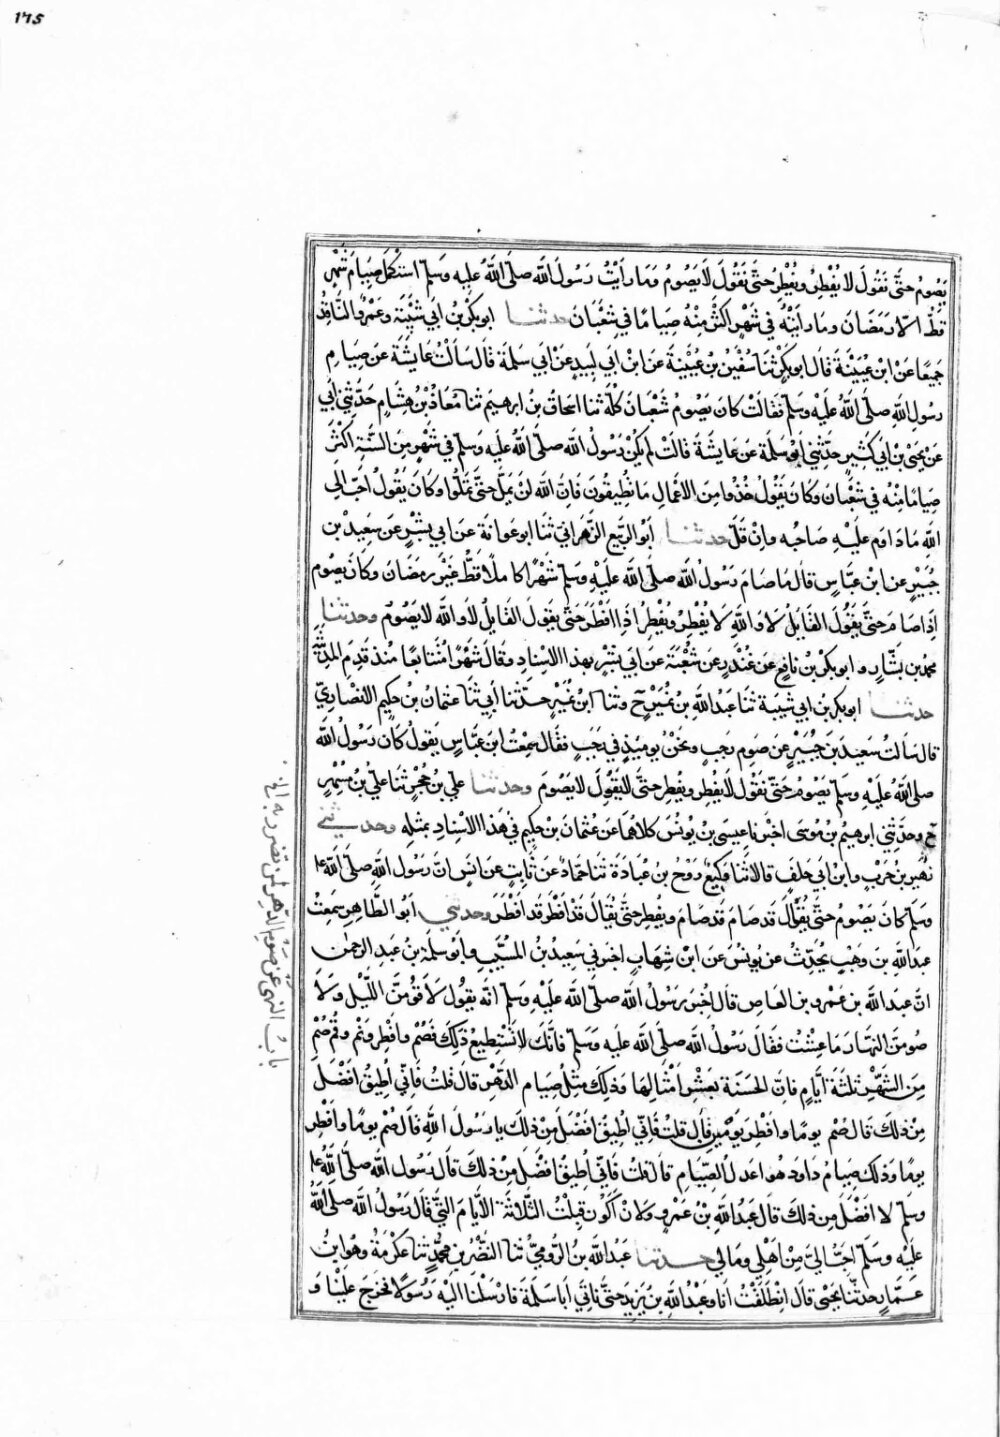 ١٢٥
يَصُومُ حتَّى نَقُولَ لا يُفْطِرُ ويُفْطِرَ حتَّى نَقُولَ لَا يَصُومُ وَمَا رَاَيْتُ رَسُولَ الله صلَّى اللهُ عليه وَسَلَّمَ استَكْمَلَ صِيَامَ شَهْرٍ
قَطُّ الّا رَمَضَانَ وَمَا رَاَيْتُهُ فِي شَهْرٍ اَكْثَرَ مِنْهُ صِيَامًا فِي شَعْبَانَ حدثنا ابو بَكْرِ بْنُ اَبِي شَيْبَةَ وَعَمْرٌو النَّاقِدُ
جَمِيعًا عَنْ ابْنِ عُيَيْنَةَ قَالَ ابو بَكْرٍ ثنا سُفْيٰنُ بْنُ عُيَيْنَةَ عَنْ ابْنِ ابي لَبِيدٍ عَنْ اَبِي سَلَمَةَ قَالَ سَاَلْتُ عَايِشَةَ عَنْ صِيَامِ
رسُولِ اللهِ صلَّى اللهُ عَلَيْهِ وَسَلَّمَ فَقَالَتْ كَانَ يَصُومُ شَعْبَانَ كُلَّهُ ثنا اسحَاقُ بنُ ابرهِيم ثنا مُعَاذُ بْنُ هِشَامٍ حَدَّثَنِي اَبِي
عَنْ يَحْيَى بْنِ اَبِي كَثِيرٍ حَدَّثَنِي اَبُو سَلَمَةَ عَنْ عَايِشَةَ قَالَتْ لَمْ يَكُنْ رَسُولُ الله صلَّى اللهُ عليه وسلَّم فِي شَهْرٍ مِنَ السَّنَةِ اَكْثَرَ
صِيَامًا مِنْهُ فِي شَعْبَانَ وَكَانَ يَقُولُ خُذُوا مِنَ الاَعْمَالِ مَا تُطِيقُونَ فَاِنَّ اللهَ لَنْ يَمَلَّ حَتَّى تَمَلُّوا وَكَانَ يَقُولُ اَحَبُّ اِلَى
اللهِ مَا دَاوَمَ عَلَيْهِ صَاحِبُه وَاِنْ قَلَّ حدثنا اَبُو الرَّبِيعِ الزَّهْرَانِيُّ ثَنَا ابو عَوَانَةَ عَنْ ابِي بِشْرٍ عَن سَعِيدِ بْنِ
جُبَيْرٍ عَنِ ابْنِ عَبَّاسٍ قَالَ مَا صَامَ رَسُولُ الله صلَّى الله عَلَيْهِ وَسَلَّم شَهْرًا كَامِلًا قَطُّ غَيْرَ رَمَضَانَ وَكَانَ يَصُومُ
اِذَا صَامَ حَتَّى يَقُولَ القَايِلُ لَا وَاللهِ لَا يُفْطِرُ وَيُفْطِرُ اِذَا اَفْطَرَ حَتَّى يَقُولَ القَايِلُ لَا وَاللهِ لَا يَصُومُ وحدثنا
محمد بن بَشَّارٍ وابو بَكْرِ بْنُ نَافِعٍ عَنْ غُنْدَرٍ عَنْ شُعْبَةَ عَنْ اَبِي بِشْرٍ بهذا الاِسْنَادِ وَقَالَ شَهْرًا مُتَتَابِعًا مُنذُ قَدِمَ المَدِينَةَ
حدثنا ابو بكرِ بن ابي شَيْبَةَ ثَنَا عَبْدُ اللهِ بن نُمَيْرٍ ح وثنا ابْنُ نُمَيْرٍ حَدَّثَنا اَبِي ثَنَا عثمَانُ بن حَكِيمٍ الاَنْصَارِيُّ
قَالَ سَاَلْتُ سَعِيدَ بَنَ جُبَيْرٍ عَنْ صَوْمِ رَجَبٍ وَنَحْنُ يَوْمَيِذٍ فِي رَجَبٍ فَقَالَ سَمِعْتُ ابنَ عَبَّاسٍ يَقُولُ كَانَ رَسُولُ اللهِ
صلى اللهُ عَلَيْهِ وَسَلَّمَ يَصُومُ حَتَّى نَقُولَ لَا يُفْطِرُ ويُفْطِرُ حتَّى نَقُولَ لَا يَصُومُ وحدثنا عَلِيُّ بن حُجْرٍ ثَنَا عَلِيُّ بْنُ مُسْهِرٍ
ح وحَدَّثَنِي ابرهِيمُ بْنُ مُوسَى اخبَرَنا عِيسَى بْنُ يُونُسَ كِلَاهُمَا عَنْ عُثْمَانَ بْنِ حَكِيمٍ فِي هَذَا الاِسْنَادِ بمثلِه وحدثني
زُهَيْرُ بْنُ حَرْبٍ وابنُ ابِي خَلَفٍ قالا ثَنَا رَوْحُ بن عُبَادَةَ ثَنَا حَمَّادٌ عَنْ ثَابِتٍ عَنْ اَنَسٍ اَنَّ رَسُولَ اللهِ صلَّى الله علـ
وسَلَّمَ كَانَ يَصُومُ حَتَّى يُقَالَ قَدْ صَامَ قَدْ صَامَ وَيُفْطِرُ حتَّى يُقَالَ قَدْ اَفْطَرَ قَدْ اَفْطَرَ وحدثني اَبُو الطَّاهِرِ سَمِعْتُ
عبدَ اللهِ بنَ وَهْبٍ يُحَدِّثُ عَنْ يُونُسَ عَنِ ابْنِ شِهَابٍ اخبَرَنِي سَعِيدُ بْنُ المُسَيَّبِ وَاَبُو سَلَمَةَ بْنُ عَبدِ الرحمٰن
انَّ عبدَ اللهِ بن عَمْرِو بنِ العاص قَالَ اُخْبِرَ رَسُولُ اللهِ صلَّى اللهُ عَلَيْهِ وسَلَّمَ انَّه يَقُولُ لَاَقُومَنَّ اللَّيْلَ وَلَاَ
صُومَنَّ النَّهَارَ مَا عِشْتُ فَقَالَ رَسُولُ الله صَلَّى الله عليه وَسَلَّمَ فَاِنَّكَ لَا تَسْتَطِيعُ ذَلِكَ فَصُمْ وَافْطِر وَنَمْ وَقُمْ صُمْ
مِنَ الشَّهْرِ ثَلٰثَةَ اَيَّامٍ فَاِنَّ الحَسَنَةَ بِعَشْرِ اَمْثَالِهَا وَذَلِكَ مِثْلُ صِيَامِ الدَّهْرِ قَالَ قُلْتُ فَاِنِّي اُطِيقُ اَفْضَلَ
مِنْ ذلِكَ قَالَ صُمْ يَوْمًا وافْطِرْ يَوْمَيْنِ قَالَ قُلْتُ فَاِنِّي اُطِيقُ اَفْضَلَ مِنْ ذَلِكَ يَا رَسُولَ اللهِ قَالَ صُمْ يَوْمًا وافْطِرْ
يَوْمًا وَذَلِكَ صِيَامُ دَاوُدَ هُوَ اَعْدَلُ الصِّيَامِ قَالَ قُلْتُ فَاِنِّي اُطِيقُ اَفْضَلَ مِنْ ذَلِكَ قَالَ رَسُولُ الله صلَّى اللهُ علـ
وَسَلَّمَ لَا اَفْضَلَ مِن ذَلِكَ قَالَ عَبْدُ اللهِ بْنُ عَمْرٍو وَلَاَنْ اَكُونَ قَبِلْتُ الثَّلَاثَةَ الاَيَّامَ الَّتِي قَالَ رَسُولُ اللهِ صلَّى اللهُ
عَلَيْهِ وَسَلَّمَ اَحَبُّ اِلَيَّ مِنْ اَهْلِي وَمَالِي حدثنا عَبْدُ اللهِ بْنُ الرُّومِيِّ ثنا النَّضْرُ بْنُ مُحَمَّدٍ ثنا عِكْرِمَةُ وَهُوَ ابْنُ
عَمَّارٍ حدثنا يَحْيَى قَالَ انْطَلَقْتُ اَنَا وَعَبْدُ اللهِ بْنُ يَزِيدَ حَتَّى نَاْتِيَ اَبَا سَلَمَةَ فَاَرْسَلْنَا اِلَيْهِ رَسُولًا فَخَرَجَ عَلَيْنَا وَ
بابُ النهي عَنْ صَوْمِ الدهر لمن تضرر به